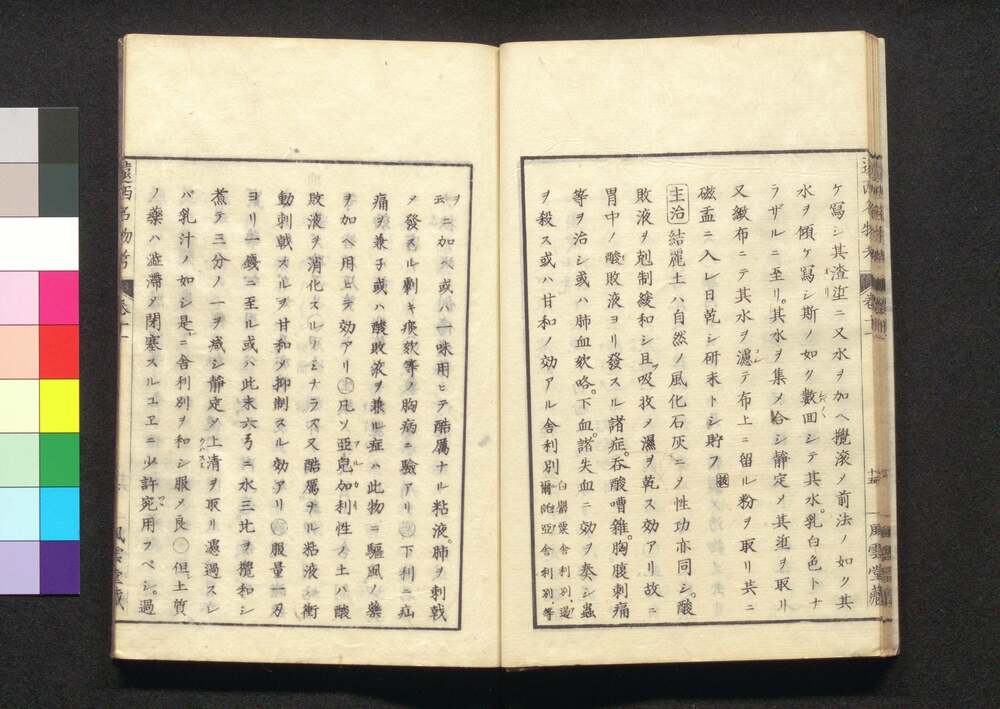 ケ寫シ其渣滓ニ又水ヲ加ヘ攪滚メ前法ノ如ク其
水ヲ傾ケ寫シ斯ノ如ク數囬シテ其水乳白色トナ
ラザルニ至リ其水ヲ集メ合シ靜定メ其滓ヲ取リ
又緻布ニテ其水ヲ濾テ布上ニ留ル粉ヲ取リ共ニ
磁盂ニ入レ日乾シ研末トシ貯フ
主治 結麗土ハ自然ノ風化石灰ニメ性功亦同シ酸
敗液ヲ剋制緩和シ且吸收メ濕ヲ乾ス効アリ故ニ
胃中ノ酸敗液ヨリ發スル諸症呑酸嘈雜胸腹刺痛
等ヲ治シ或ハ肺血欬咯下血諸失血ニ効ヲ奏シ蟲
ヲ殺ス或ハ甘和ノ効アル舍利別
遠西名物考 卷十一
十五 風雲堂藏
ヲニ加ヘ或ハ一味用ヒテ酷厲ナル粘液肺ヲ刺戟
メ發スル劇キ痰欬等ノ胸病ニ驗アリ 下利ニ疝
痛ヲ兼子或ハ酸敗液ヲ兼ル症ハ此物ニ驅風ノ藥
ヲ加ヘ用ヒテ効アリ 凡ソ亞兒加利性ノ土ハ酸
敗液ヲ消化スルノミナラス又酷厲ナル粘液ノ衝
動刺戟スルヲ甘和メ抑制スル効アリ 服量一刃
ヨリ一錢ニ至ル或ハ此末六弓ニ水三比ヲ攪和シ
煮テ三分ノ一ヲ减シ靜定メ上清ヲ取リ濾過スレ
バ乳汁ノ如シ是ニ舍利別ヲ和シ服メ良 但土質
ノ藥ハ澁滯メ閉塞スルユヱニ少許宛用フベシ過
遠西名物考 卷十一
風雲堂藏